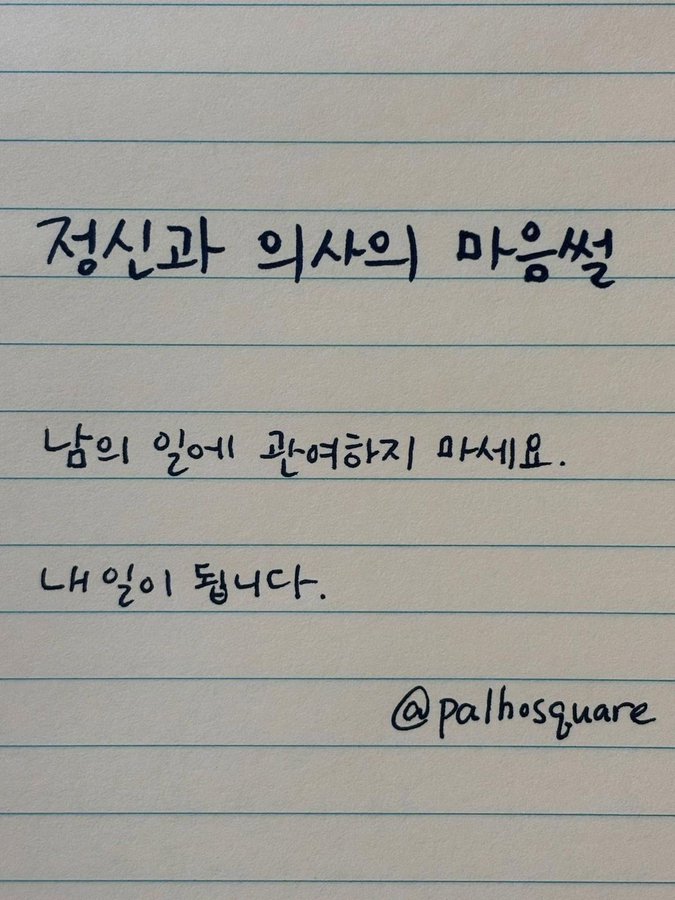 정신과 의사의 마음썰
남의 일에 관여하지 마세요.
내 일이 됩니다.
@palhosquare